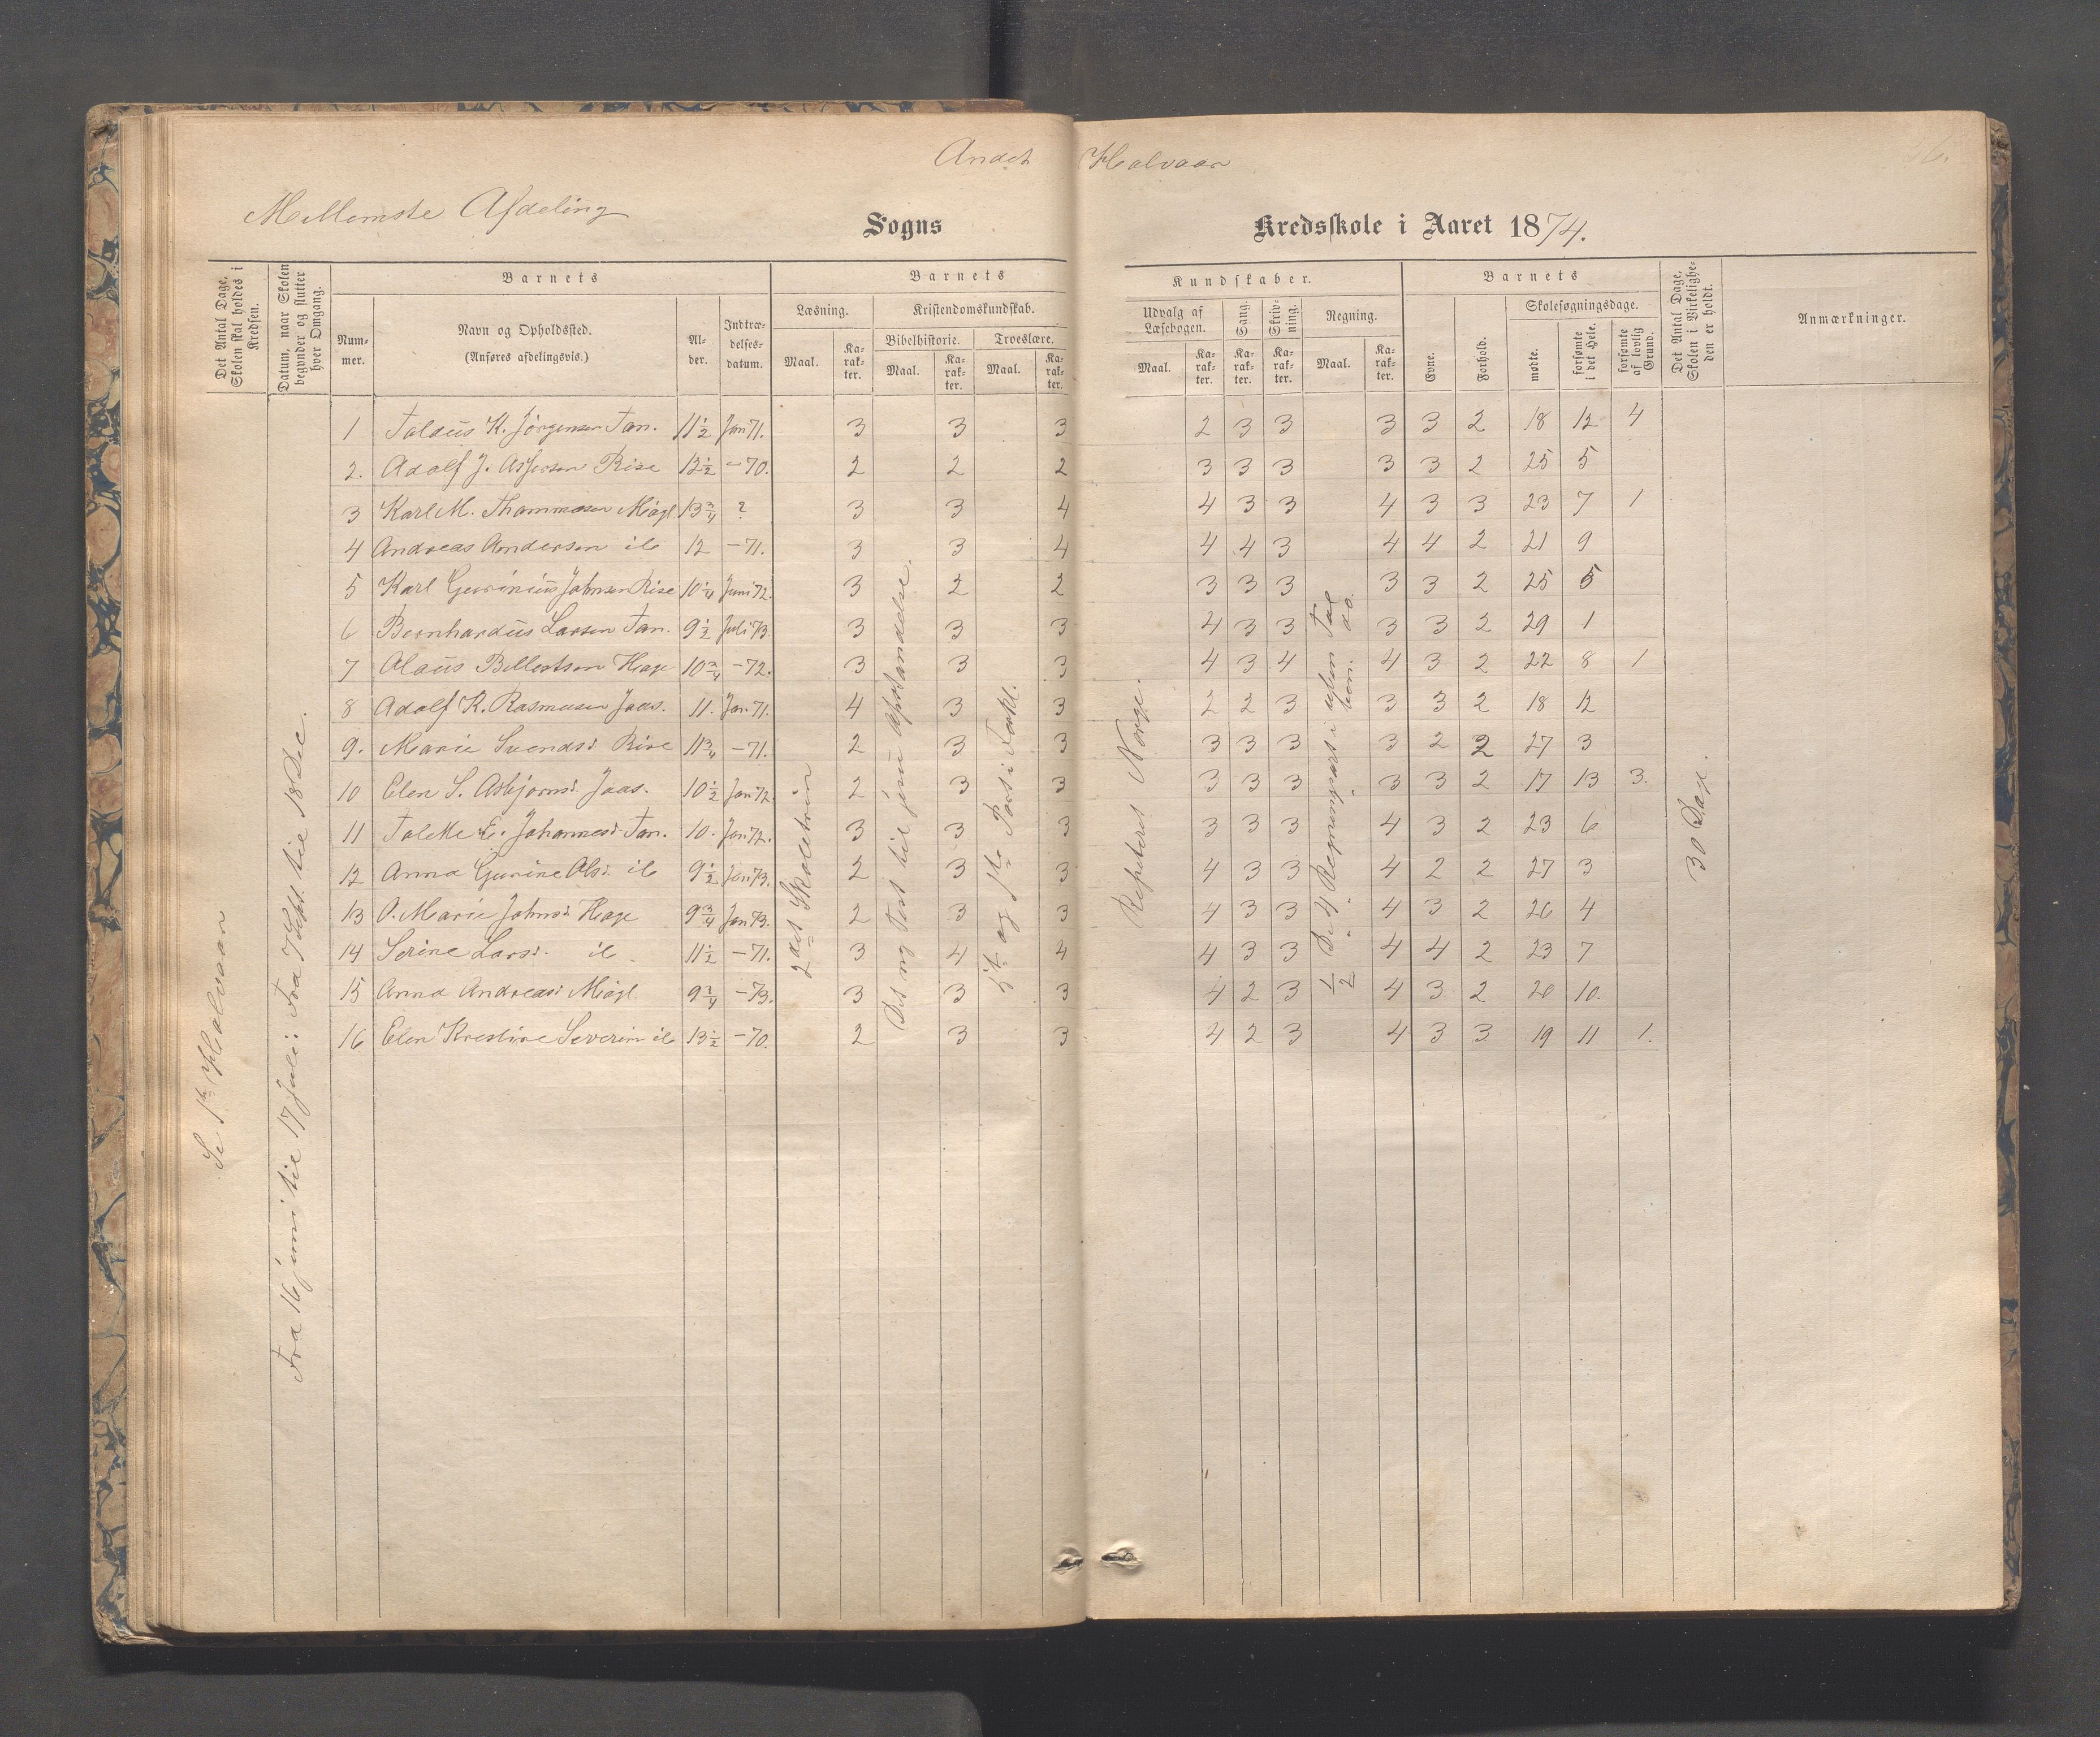 Andet Halvaar
Mellemste Afdeling
Sogns Kredsskole i Aaret 1874.
Det Antal Dage, Skolen skal holdes i Kredsen.
Datum, naar Skolen begynder og slutter hver Omgang.
Barnets
Nummer.
Navn og Opholdssted. (Anføres afdelingsvis.)
Alder.
Indtrædelsesdatum.
Barnets
Læsning. Kristendomskundskab.
Bibelhistorie. Troeslære.
Maal. Karakter. Maal. Karakter. Maal. Karakter.
Kundskaber.
Udvalg af Læsebogen. Sang. Skrivning. Regning.
Maal. Karakter. Karakter. Karakter. Maal. Karakter.
Barnets
Evne. Forhold. Skolesøgningsdage.
mødte. forsømte i det Hele. forsømte af lovlig Grund.
Det Antal Dage, Skolen i Virkeligheden er holdt.
Anmærkninger.
Se 1ste Halvaar
Fra 16 juni til 17 Juli: Fra 7 Sept. til 18 Dec.
2det Skoletrin
Det ny Test til Jesu Opstandelse.
1ste og Part i Forkl.
Repeteret Norge.
De 4 Regningsart i
30 Dage.
1 Taldus K. Jørgensen Tan. 11½ Jan 71. 3 3 3 2 3 3 3 3 2 18 12 4
2. Adolf J. Rise 12½ -70. 2 2 2 3 3 3 3 3 2 25 5
3 Karl M. Thommasen Miogl 13¾ ? 3 3 4 4 3 3 4 3 3 23 7 1
4 Andreas Andersen ib 12 -71. 3 3 4 4 4 3 4 4 2 21 9
5 Karl Gurinius Johnsen Rise 10¼ Juni 72. 3 2 2 3 3 3 3 3 2 25 5
6 Bernhardus Larsen Tan. 9½ Juli 73. 3 3 3 4 3 3 3 3 2 29 1
7 Olaus Bellestsen Hage 10¾ -72. 3 3 3 4 3 4 4 3 2 22 8 1
8 Adolf K. Rasmusen Jaas. 11. Jan. 71. 4 3 3 2 2 3 3 3 2 18 12
9. Marie Svendsd. Rise 11¾ -71. 2 3 3 3 3 3 3 2 2 27 3
10 Elen S. Asbjørnsd. Jaas. 10½ Jan 72. 2 3 3 3 3 3 3 3 2 17 13 3.
11 Talette E. Johannesd. Tan. 10. Jan 72. 3 3 3 3 3 3 4 3 2 23 6
12 Anna Gurine Olsd. ib 9½ Jan 73. 2 3 3 4 3 3 4 2 2 27 3
13 O. Marie Johnsd. Hage 9¾ Jan 73. 2 3 3 4 3 3 4 3 2 26 4
14 Serine Larsd. ib 11½ -71. 3 4 4 4 3 3 4 4 2 23 7
15 Anna Andreasd. Miogl 9¾ -73. 3 3 3 4 2 3 4 3 2 20 10.
16 Elen Krestine Severin ib 13½ -70. 2 3 3 4 2 3 4 3 3 19 11 1.